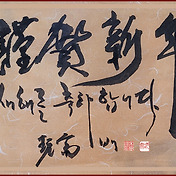 謹賀新年
새해를 축하합니다